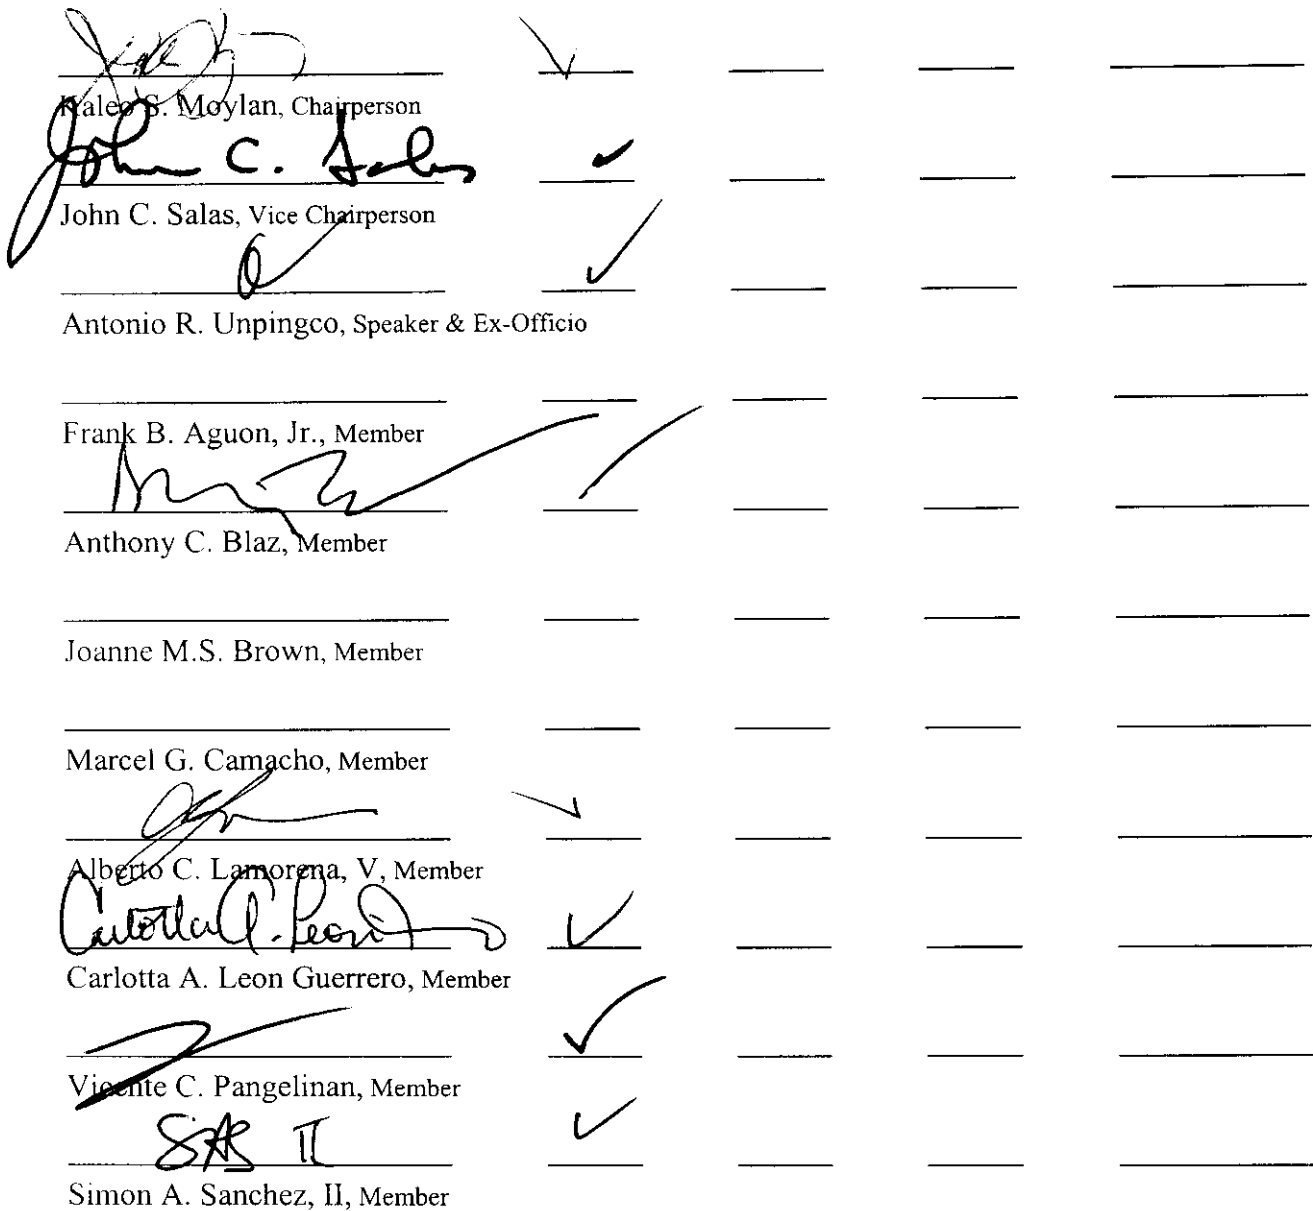 Kaleo S. Moylan, Chairperson
John C. Salas
John C. Salas, Vice Chairperson
Antonio R. Unpingco, Speaker & Ex-Officio
Frank B. Aguon, Jr., Member
Anthony C. Blaz, Member
Joanne M.S. Brown, Member
Marcel G. Camacho, Member
Alberto C. Lamorena, V, Member
Carlotta A. Leon
Carlotta A. Leon Guerrero, Member
Vicente C. Pangelinan, Member
SAS II
Simon A. Sanchez, II, Member